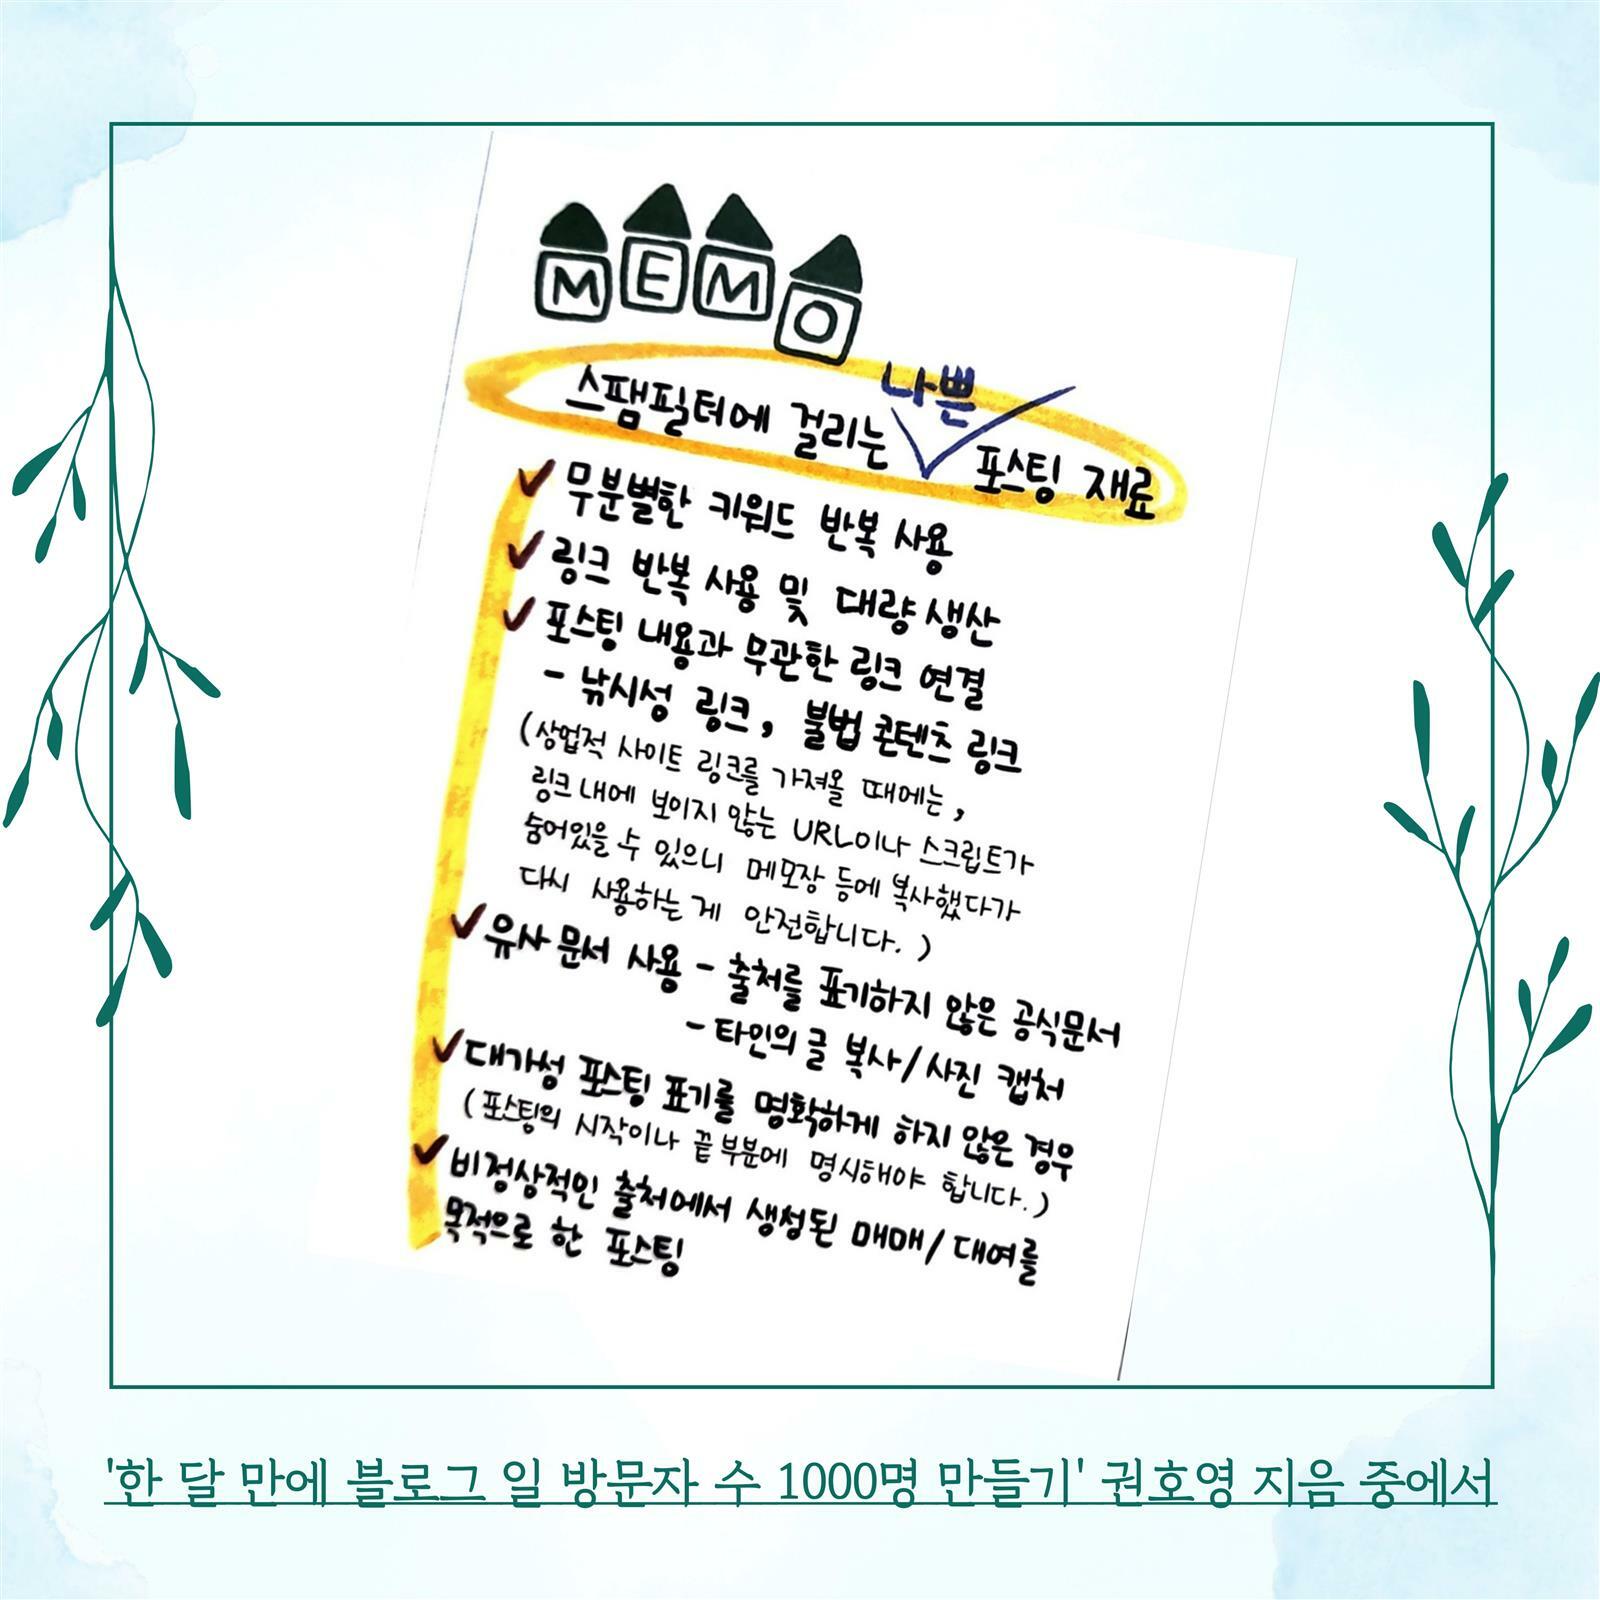 MEMO
스팸필터에 걸리는 나쁜 포스팅 재료
무분별한 키워드 반복 사용
링크 반복 사용 및 대량 생산
포스팅 내용과 무관한 링크 연결
- 낚시성 링크, 불법 콘텐츠 링크
(상업적 사이트 링크를 가져올 때에는,
링크 내에 보이지 않는 URL이나 스크립트가
숨어있을 수 있으니 메모장 등에 복사했다가
다시 사용하는 게 안전합니다.)
유사 문서 사용 - 출처를 표기하지 않은 공식문서
- 타인의 글 복사/사진 캡처
대가성 포스팅 표기를 명확하게 하지 않은 경우
(포스팅의 시작이나 끝 부분에 명시해야 합니다.)
비정상적인 출처에서 생성된 매매/대여를
목적으로 한 포스팅
'한 달 만에 블로그 일 방문자 수 1000명 만들기' 권호영 지음 중에서